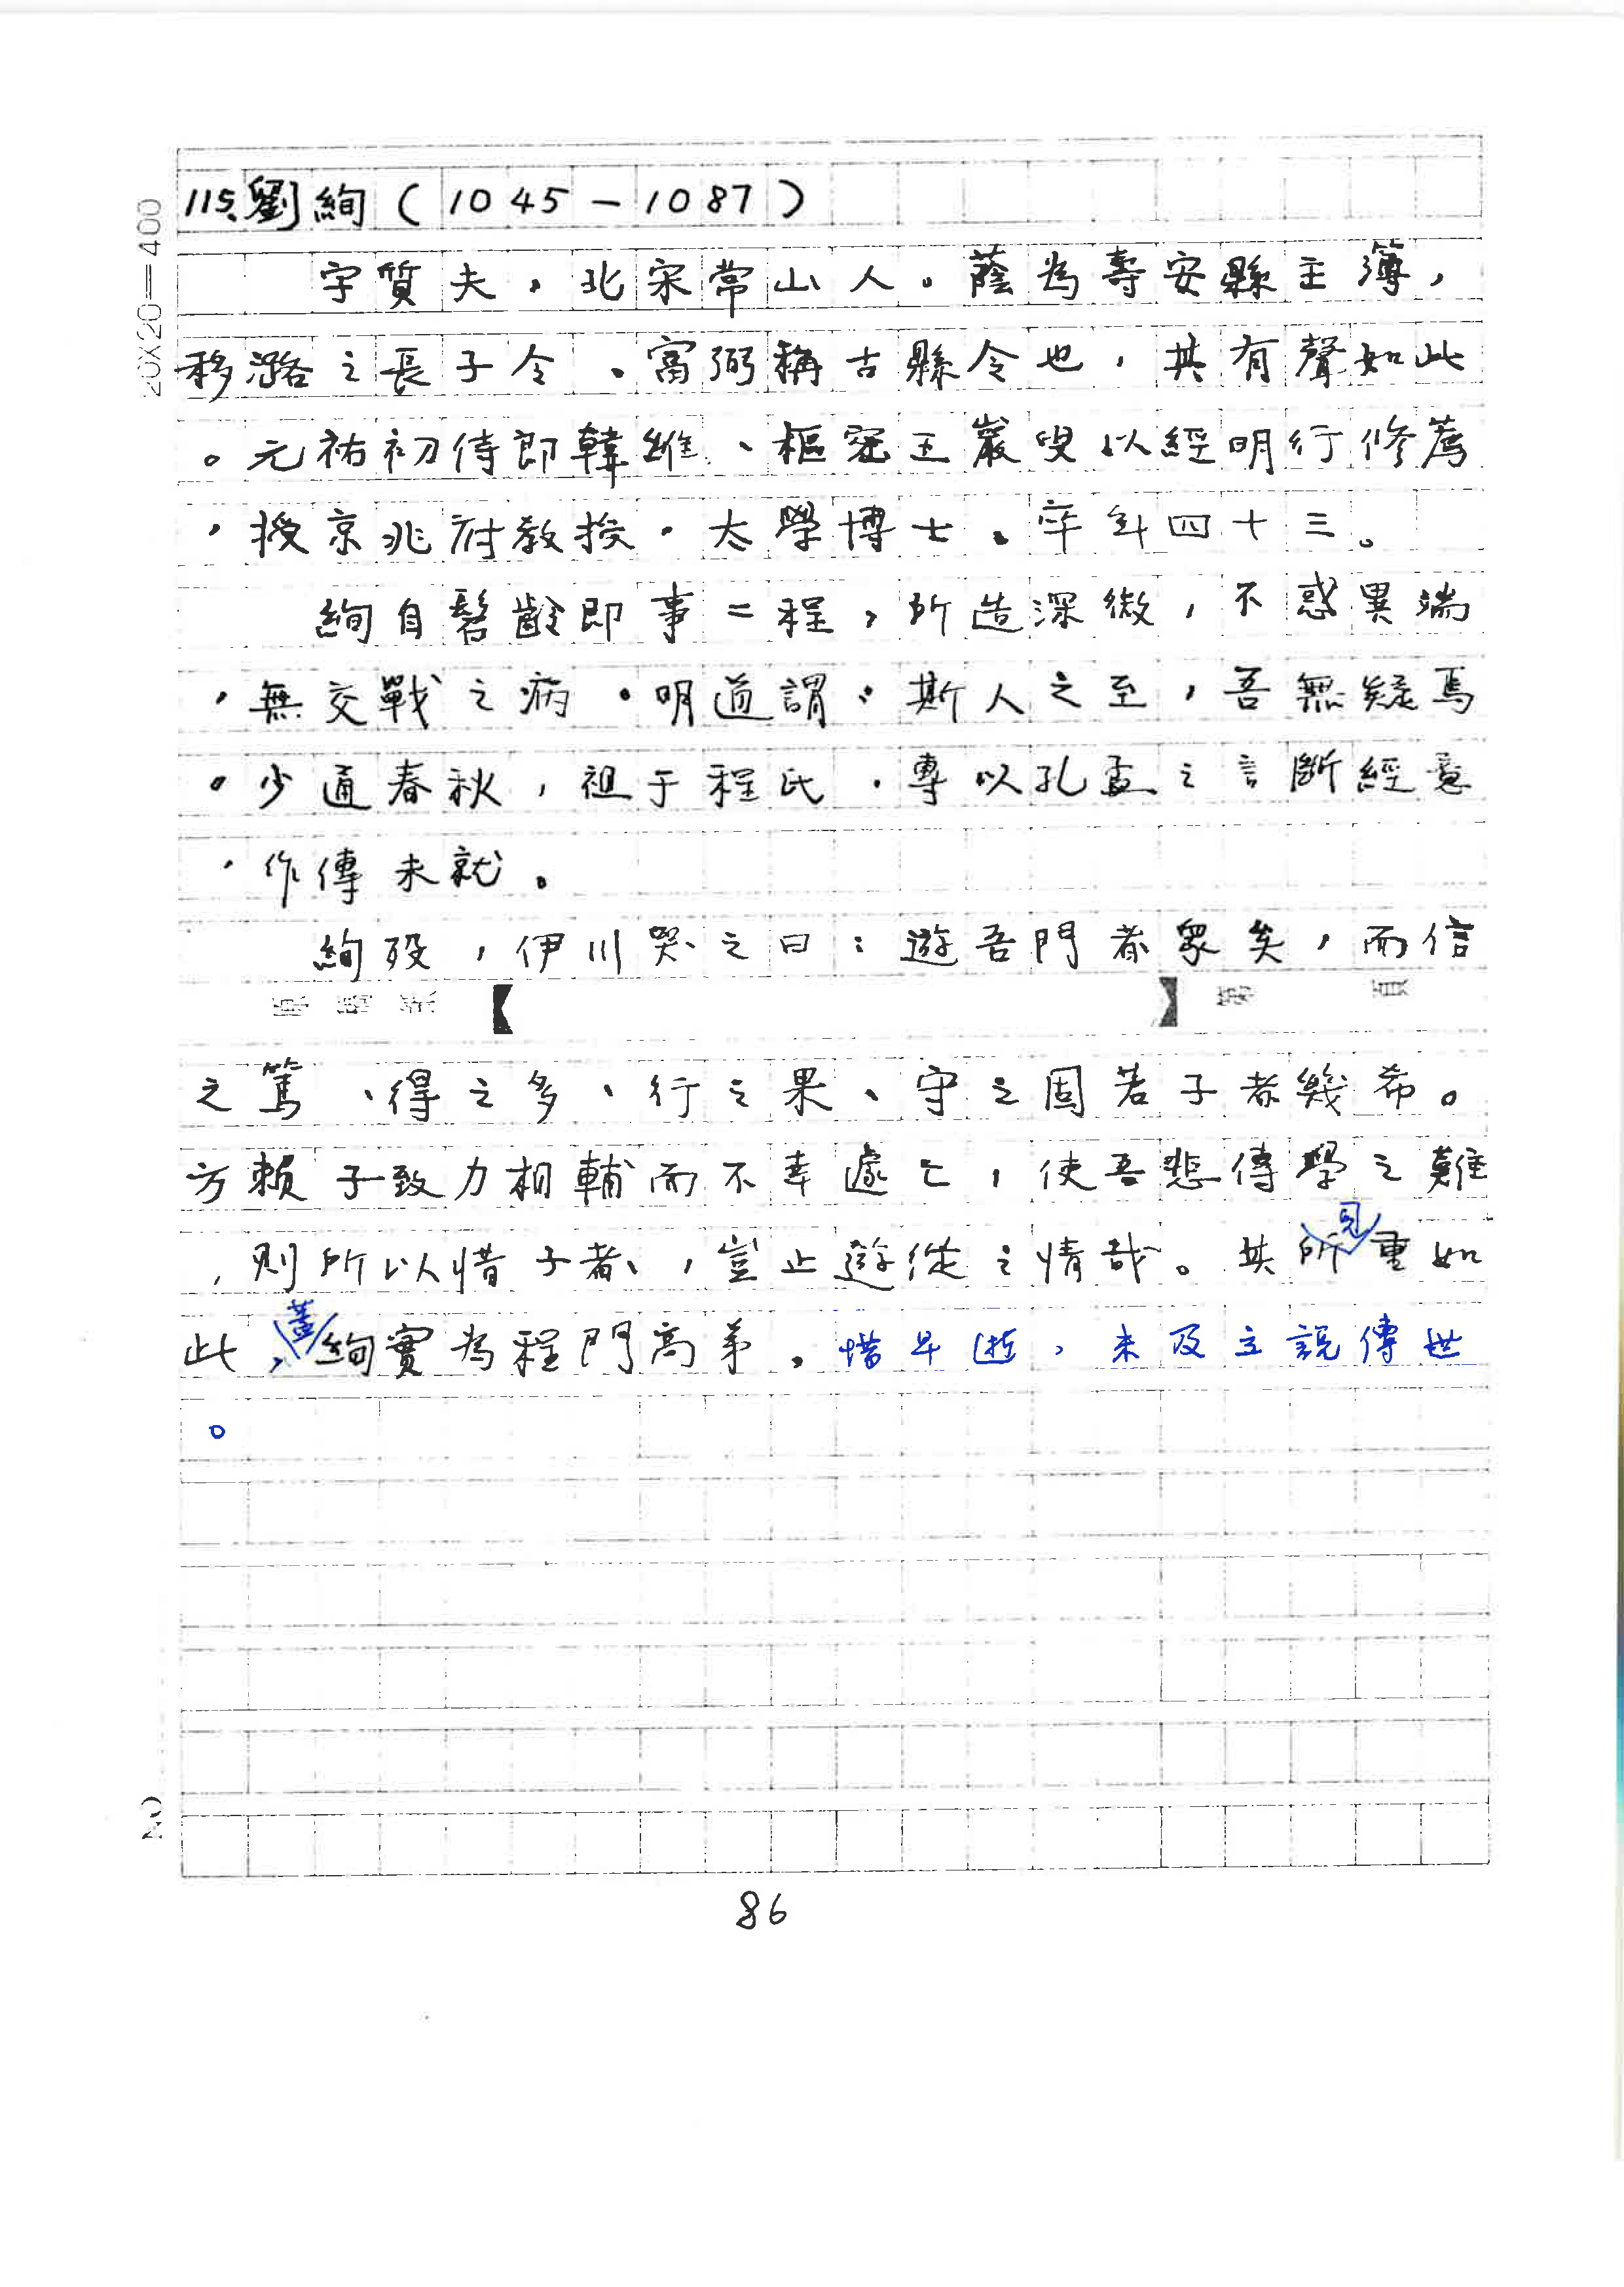 115、劉絢(1045-1087)
字質夫,北宋常山人。蔭為壽安縣主簿,
移潞之長子令、富弼稱古縣令也,其有聲如此
。元祐初侍郎韓維、樞密王巖叟以經明行修薦
,授京兆府教授,太學博士。卒年四十三。
絢自髫齡即事二程,所造深微,不惑異端
,無交戰之病。明道謂:斯人之至,吾無疑焉
。少通春秋,祖于程氏,專以孔孟之言斷經意
,作傳未就。
絢歿,伊川哭之曰:遊吾門者眾矣,而信
【 】第 頁
之篤、得之多、行之果、守之固若子者幾希。
方賴子致力相輔而不幸遽亡,使吾悲傳學之難
,則所以惜子者、,豈止遊從之情哉。其所見重如
此,蓋絢實為程門高弟。惜早逝,未及立說傳世
。
20X20=400
86